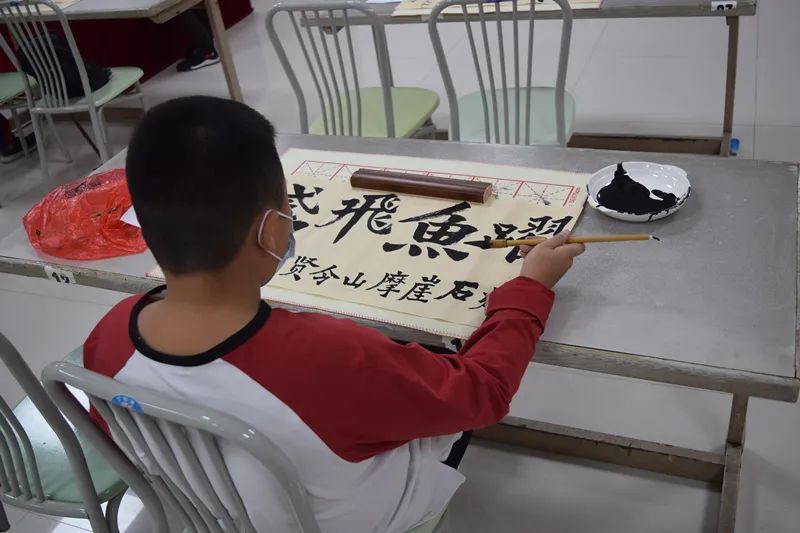 飛魚躍
贤令山摩崖石